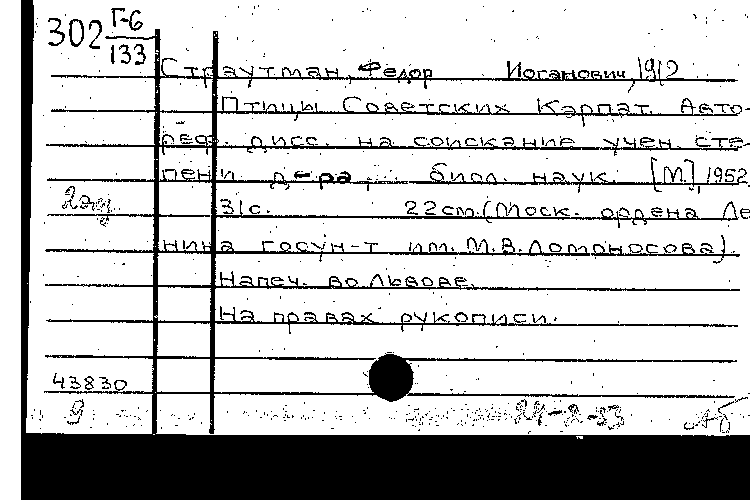 302 Г-6
133
Страутман, Федор Иоганович, 1912
Птицы Советских Карпат. Авто-
реф. дисс. на соискание учен. сте-
пени д-ра ... биол. наук. [М.], 1952
2 экз
31с. 22см. (Моск. ордена Ле
нина госун-т им. М.В. Ломоносова).
Напеч. во Львове.
На правах рукописи.
43830
9 24-2-53